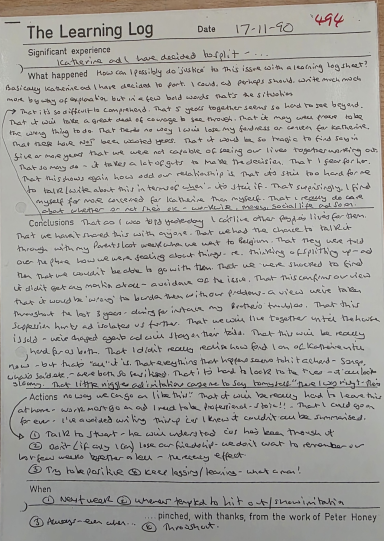 494
The Learning Log Date 17-11-90
Significant experience
Katherine and I have decided to split - ...
What happened How can I possibly do 'justice' to this issue with a learning log sheet?
Basically Katherine and I have decided to part. I could, and perhaps should, write much much
more by way of explanation but in a few bold words that's the situation
→ That it's so difficult to comprehend. That 5 years together seems so hard to see beyond.
That it will take a great deal of courage to see through. That it may even prove to be
the wrong thing to do. That there's no way I will lose my fondness or concern for Katherine.
That these have NOT been wasted years. That it would be so tragic to find say in
five or more years that we were not capable of seeing our lives together working out.
That so may do - it takes a lot of guts to make the decision. That I fear for her.
That this shows again how odd our relationship is That it's still too hard for me
to talk/write about this in terms of when - it's still if. That surprisingly, I find
myself far more concerned for Katherine than myself. That I really do care
about whether or not she's ok - workwise, money, social life and so on.
Conclusions That as I was told yesterday I can't live other peoples lives for them.
That we haven't shared this with anyone. That we had the chance to talk it
through with my Parents last week when we went to Belgium. That they were told
over the phone how we were feeling about things - ie. thinking of splitting up - and
then that we wouldn't be able to go with them. That we were shocked to find
it didn't get any mention at all - avoidance of the issue. That this confirms our view
that it would be 'wrong' to burden them with our problems - a view we've taken
throughout the last 3 years - during for instance my Brothers troubles. That this
suppression hurts and isolates us further. That we will live together until the house
is sold - we've changed agents and will stay on their books. That this will be really
hard for us both. That I didn't really realise how fond I am of Katherine until
now - but that's "all" it is. That everything that happens seems to hit it hard - songs,
whatever - we're both so sensitised. That it's hard to look to the future - it all looks
gloomy. That little niggles and irritations cause me to say to myself "There I was right - there's
Actions no way we can go on like this!" That it will be really hard to leave this
at home - work must go on and I need to be professional - I join!! - That I could go on
for ever. I've avoided writing this up cos I knew it couldn't all be summarised.
① Talk to Stuart - he will understand cos he's been through it
② Don't (if only I can) lose our friendship - we don't want to remember our
last few weeks together as hell - the recency effect.
③ Try to be positive ④ Keep logging/learning - what a man!
When
① Next week ② whenever tempted to hit out/show irritation
③ Always - even when... ④ Throughout.
... pinched, with thanks, from the work of Peter Honey